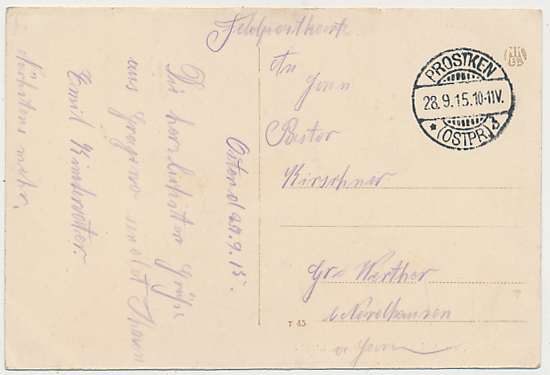 Feldpostkarte
An
Herrn
Pastor
Kirschner
Gr. Werther
b. Nordhausen
a. Harz
PROSTKEN
28.9.15.10-11V.
* (OSTPR.) 3
T 45
Osten d 29.9.15.
Die herzlichsten Grüße
aus sendet Ihnen
Emil
Nächstens mehr.